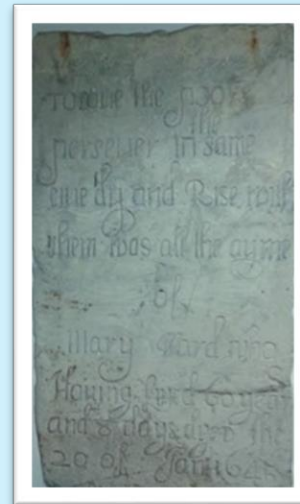 To loue the poore
the
persever in same
live dy and Rise with
them was all the ayme
of
Mary Ward who
Having lived 60 years
and 8 days dyed the
20 of Jan 1645